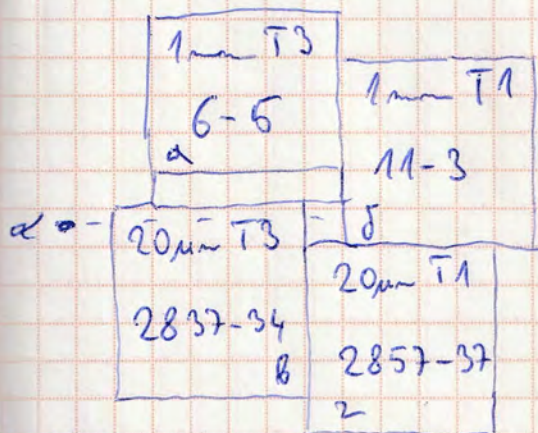 1mm T3
6-5
а
1mm T1
11-3
б
α
20μm T3
2837-34
в
20μm T1
2857-37
г